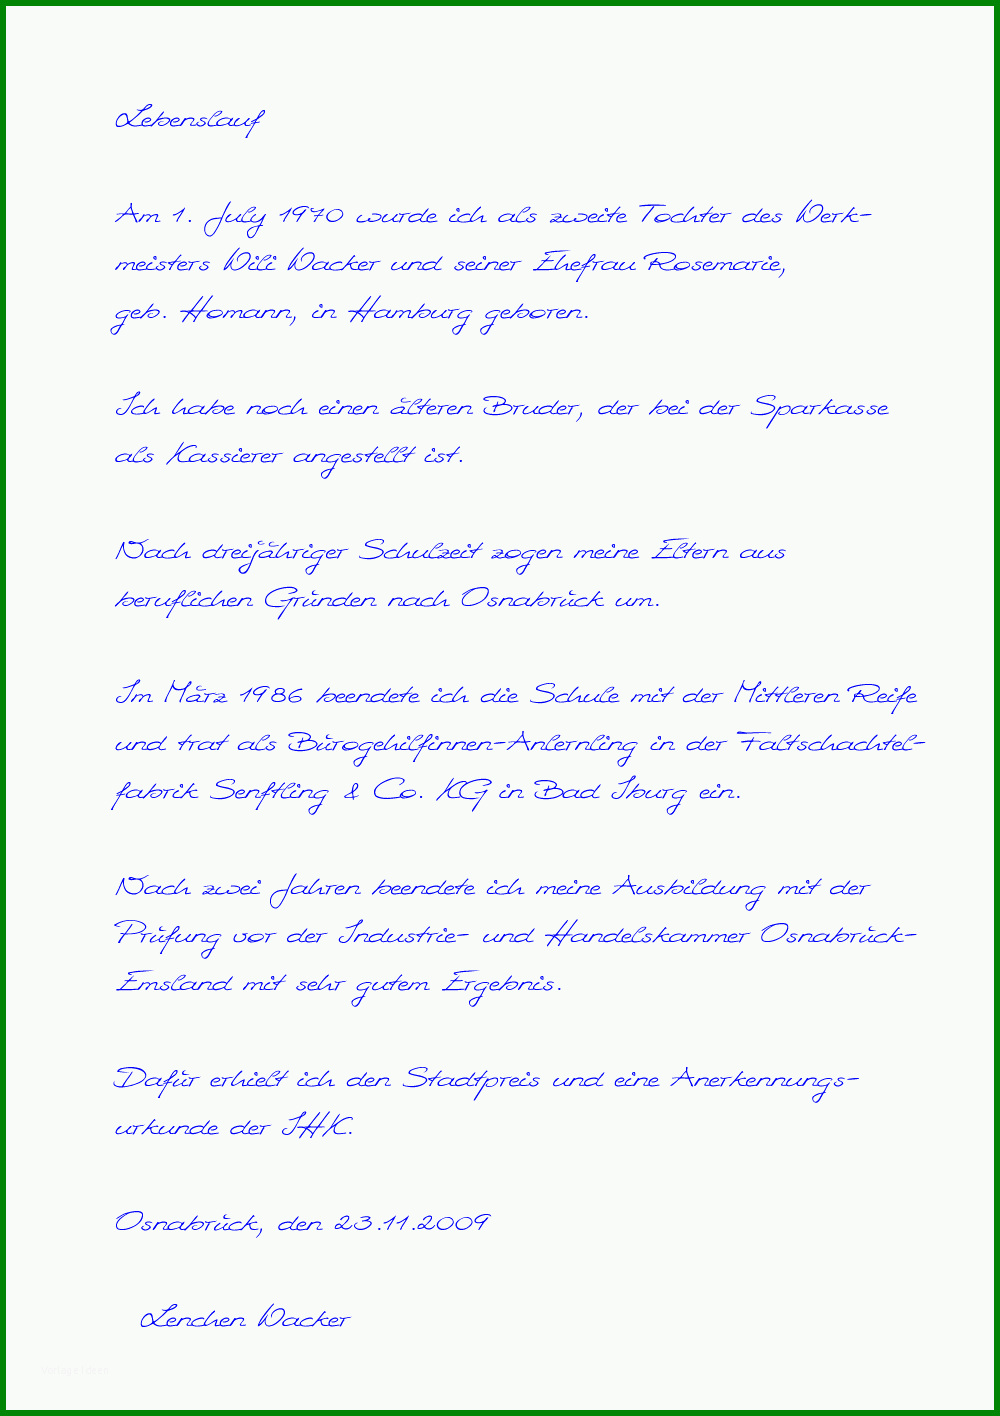 Lebenslauf
Am 1. July 1970 wurde ich als zweite Tochter des Werk-
meisters Wili Wacker und seiner Ehefrau Rosemarie,
geb. Homann, in Hamburg geboren.
Ich habe noch einen älteren Bruder, der bei der Sparkasse
als Kassierer angestellt ist.
Nach dreijähriger Schulzeit zogen meine Eltern aus
beruflichen Gründen nach Osnabrück um.
Im März 1986 beendete ich die Schule mit der Mittleren Reife
und trat als Bürogehilfinnen-Anlernling in der Faltschachtel-
fabrik Senftling & Co. KG in Bad Iburg ein.
Nach zwei Jahren beendete ich meine Ausbildung mit der
Prüfung vor der Industrie- und Handelskammer Osnabrück-
Emsland mit sehr gutem Ergebnis.
Dafür erhielt ich den Stadtpreis und eine Anerkennungs-
urkunde der IHK.
Osnabrück, den 23.11.2009
Lenchen Wacker